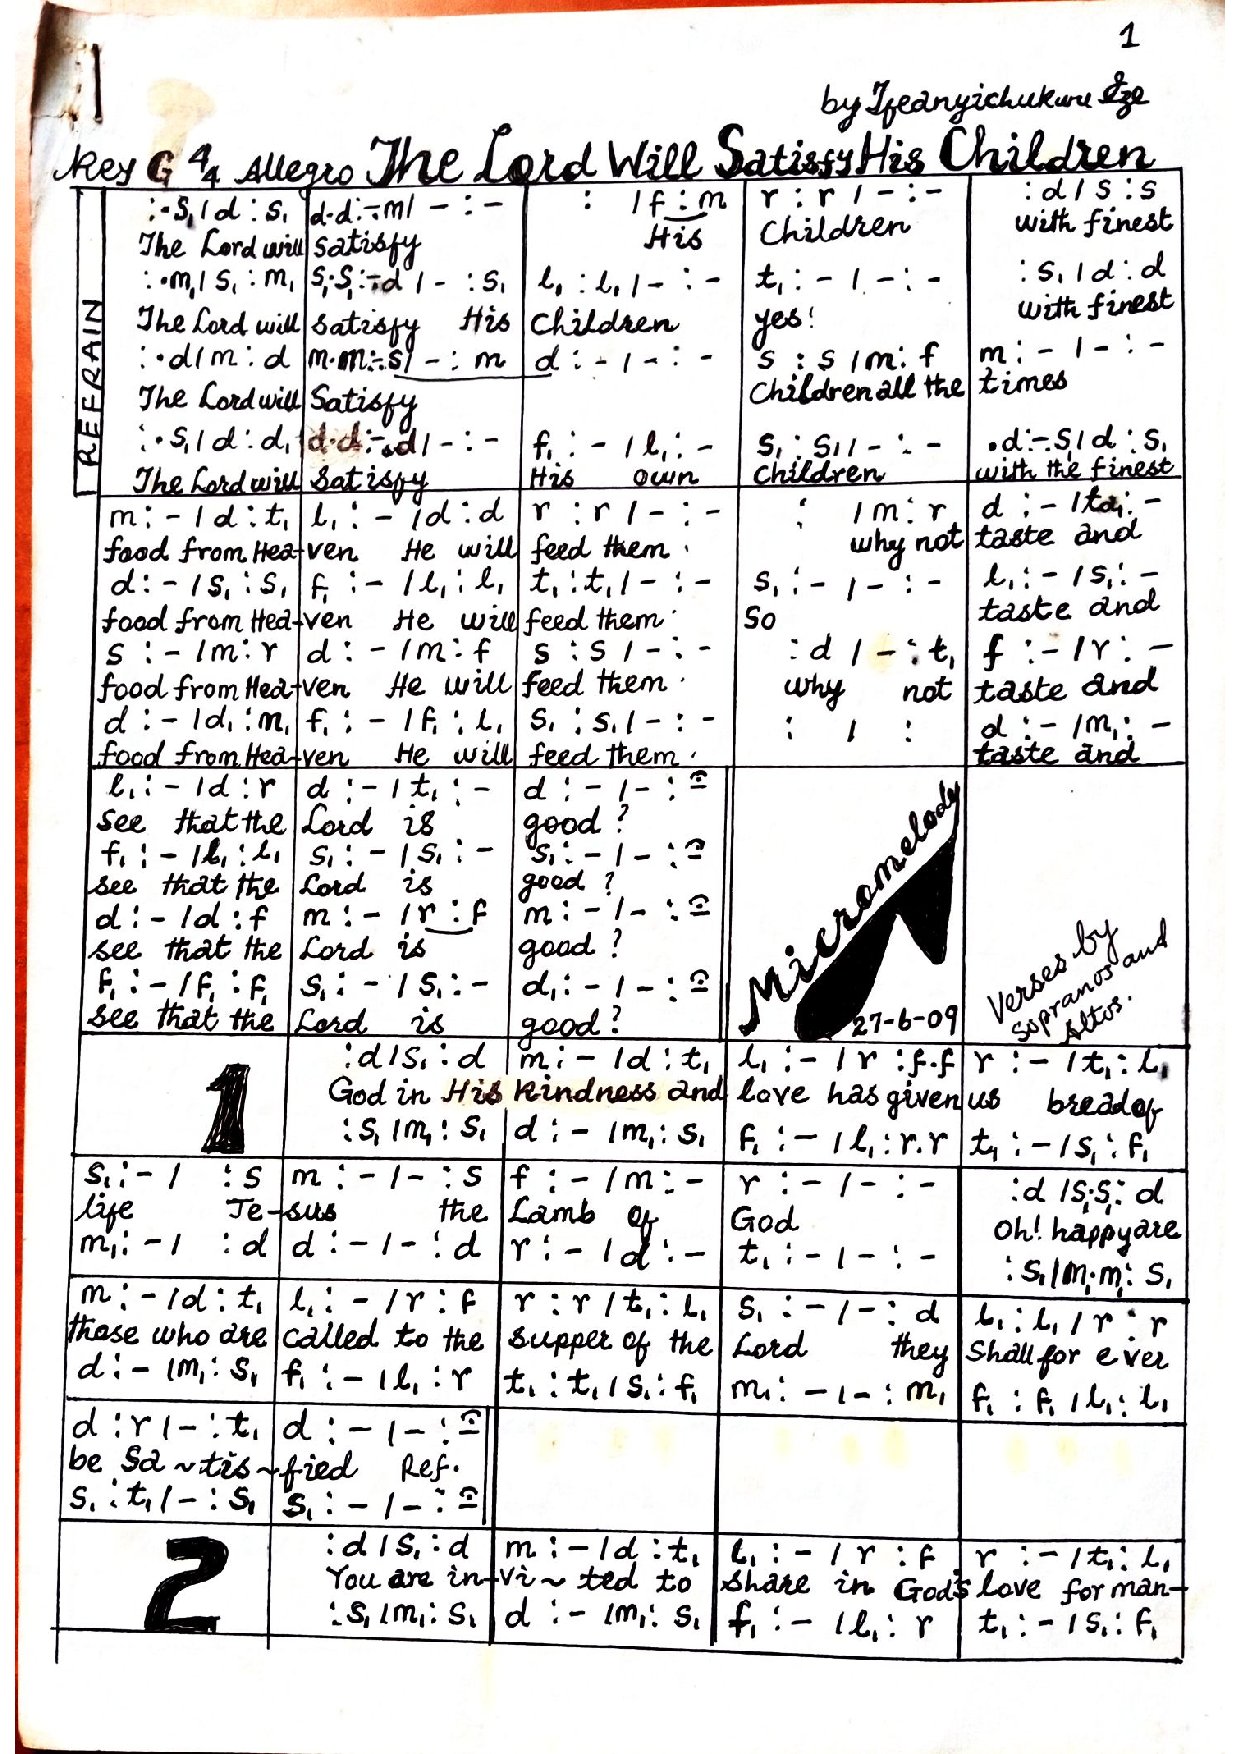 1
by Ifeanyichukwu Eze
Key G 4/4 Allegro The Lord Will Satisfy His Children
REFRAIN
:.s₁/d :s₁ d.d:-.m/-:- : /f:m r :r/-:- :d/s :s
The Lord will satisfy His Children with finest
:.m₁/s₁ :m₁ s₁.s₁:-.d/- :s₁ l₁ :l₁/-:- t₁:-/-:- :s₁/d:d
The Lord will satisfy His Children yes! with finest
:.d/m :d m.m:-.s/-:m d:-/-:- s :s/m:f m:-/-:-
The Lord will Satisfy Children all the times
:.s₁/d :d₁ d.d:-.d/-:- f₁:-/l₁:- s₁:s₁/-:- .d:-.s₁/d :s₁
The Lord will Satisfy His own Children with the finest
m:-/d:t₁ l₁:-/d:d r :r/-:- : /m:r d:-/ta₁:-
food from Hea-ven He will feed them. why not taste and
d:-/s₁:s₁ f₁:-/l₁:l₁ t₁:t₁/-:- s₁:-/-:- l₁:-/s₁:-
food from Hea-ven He will feed them. So taste and
s :-/m:r d:-/m:f s :s/-:- :d/-:t₁ f :-/r:-
food from Hea-ven He will feed them. why not taste and
d:-/d₁:m₁ f₁:-/f₁:l₁ s₁:s₁/-:- : / : d:-/m₁:-
food from Hea-ven He will feed them. taste and
l₁:-/d:r d:-/t₁:- d:-/-:-
see that the Lord is good?
f₁:-/l₁:l₁ s₁:-/s₁:- s₁:-/-:-
see that the Lord is good?
d:-/d:f m:-/r:f m:-/-:-
see that the Lord is good?
f₁:-/f₁:f₁ s₁:-/s₁:- d₁:-/-:-
see that the Lord is good?
Micromelody
27-6-09
Verses by
Sopranos and
Altos.
1
:d/s₁:d m:-/d:t₁ l₁:-/r:f.f r:-/t₁:l₁
God in His kindness and love has given us bread of
:s₁/m₁:s₁ d:-/m₁:s₁ f₁:-/l₁:r.r t₁:-/s₁:f₁
s₁:-/ :s m:-/-:s f:-/m:- r:-/-:- :d/s₁.s₁:d
life Je-sus the Lamb of God Oh! happy are
m₁:-/ :d d:-/-:d r:-/d:- t₁:-/-:- :s₁/m₁.m₁:s₁
m:-/d:t₁ l₁:-/r:f r:r/t₁:l₁ s₁:-/-:d l₁:l₁/r:r
those who are called to the supper of the Lord they Shall for ever
d:-/m₁:s₁ f₁:-/l₁:r t₁:t₁/s₁:f₁ m₁:-/-:m₁ f₁:f₁/l₁:l₁
d:r/-:t₁ d:-/-:-
be sa~tis~fied Ref.
s₁:t₁/-:s₁ s₁:-/-:-
2
:d/s₁:d m:-/d:t₁ l₁:-/r:f r:-/t₁:l₁
You are in-vi~ted to share in God's love for man-
:s₁/m₁:s₁ d:-/m₁:s₁ f₁:-/l₁:r t₁:-/s₁:f₁